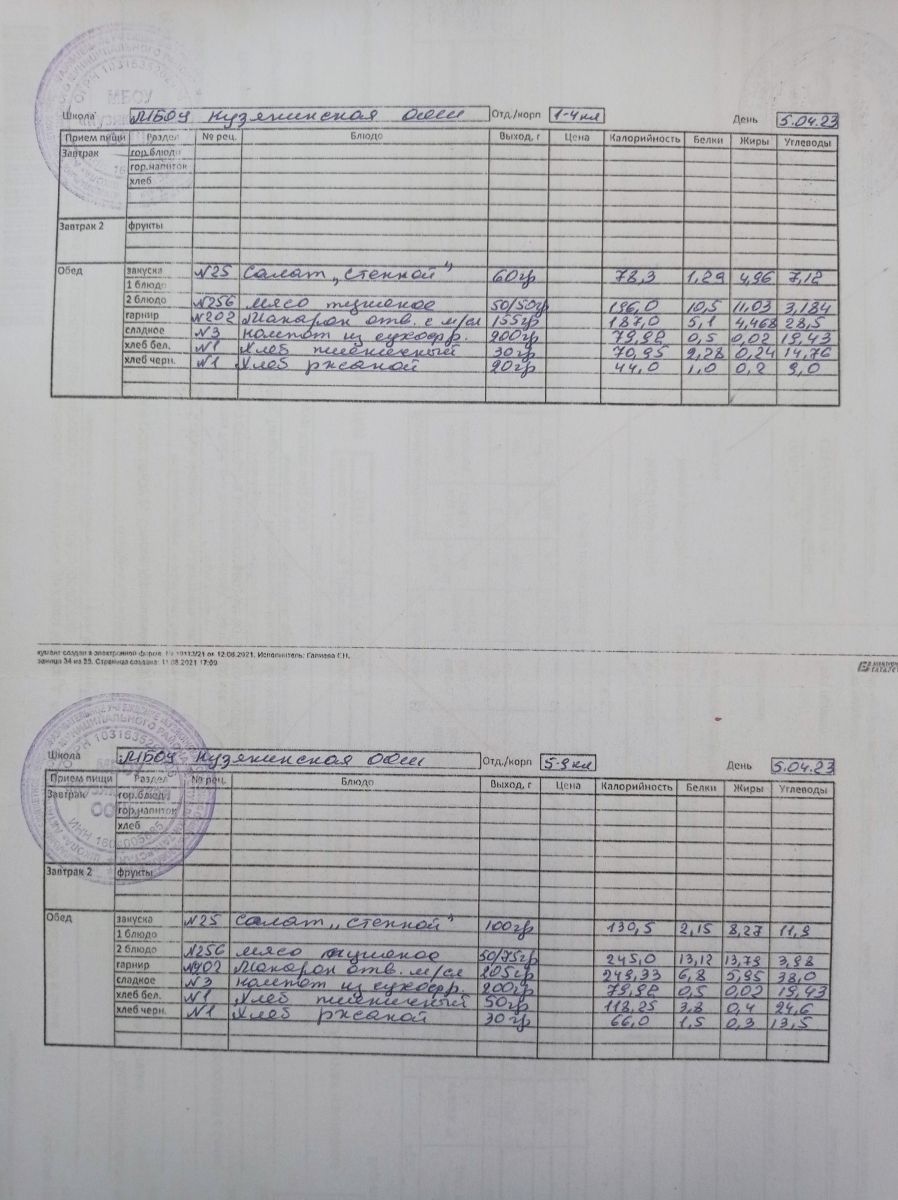 Школа МБОУ Кузякинская ООШ Отд./корп 1-4 кл День 5.04.23
Прием пищи Раздел № рец. Блюдо Выход, г Цена Калорийность Белки Жиры Углеводы
Завтрак гор.блюдо
гор.напиток
хлеб
Завтрак 2 фрукты
Обед закуска №25 Салат „Степной" 60гр 78,3 1,29 4,96 7,12
1 блюдо
2 блюдо №256 мясо тушеное 50/50гр 196,0 10,5 11,03 3,184
гарнир №202 Макарон отв. с м/сл 155гр 187,0 5,1 4,468 28,5
сладкое №3 компот из сухофр. 200гр 79,98 0,5 0,02 19,43
хлеб бел. №1 Хлеб пшеничный 30гр 70,95 2,28 0,24 14,76
хлеб черн. №1 Хлеб ржаной 20гр 44,0 1,0 0,2 9,0
кумент создан в электронной форме. от 12.08.2021. Исполнитель:
аница 34 из 39. Страница создана: 11.08.2021 17:09
Школа МБОУ Кузякинская ООШ Отд./корп 5-9 кл День 5.04.23
Прием пищи Раздел № рец. Блюдо Выход, г Цена Калорийность Белки Жиры Углеводы
Завтрак гор.блюдо
гор.напиток
хлеб
Завтрак 2 фрукты
Обед закуска №25 Салат „Степной" 100гр 130,5 2,15 8,27 11,9
1 блюдо
2 блюдо №256 мясо тушеное 50/75гр 245,0 13,12 13,79 3,98
гарнир №202 Макарон отв. м/сл 205гр 249,33 6,8 5,95 38,0
сладкое №3 компот из сухофр. 200гр 79,98 0,5 0,02 19,43
хлеб бел. №1 Хлеб пшеничный 50гр 118,25 3,8 0,4 24,6
хлеб черн. №1 Хлеб ржаной 30гр 66,0 1,5 0,3 13,5